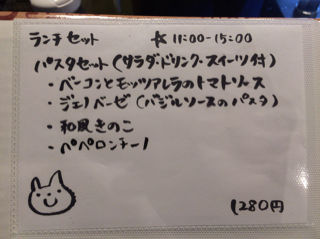 ランチセット ☆ 11:00-15:00
パスタセット(サラダ・ドリンク・スイーツ付)
・ベーコンとモッツアレラのトマトソース
・ジェノベーゼ(バジルソースのパスタ)
・和風きのこ
・ペペロンチーノ
1280円